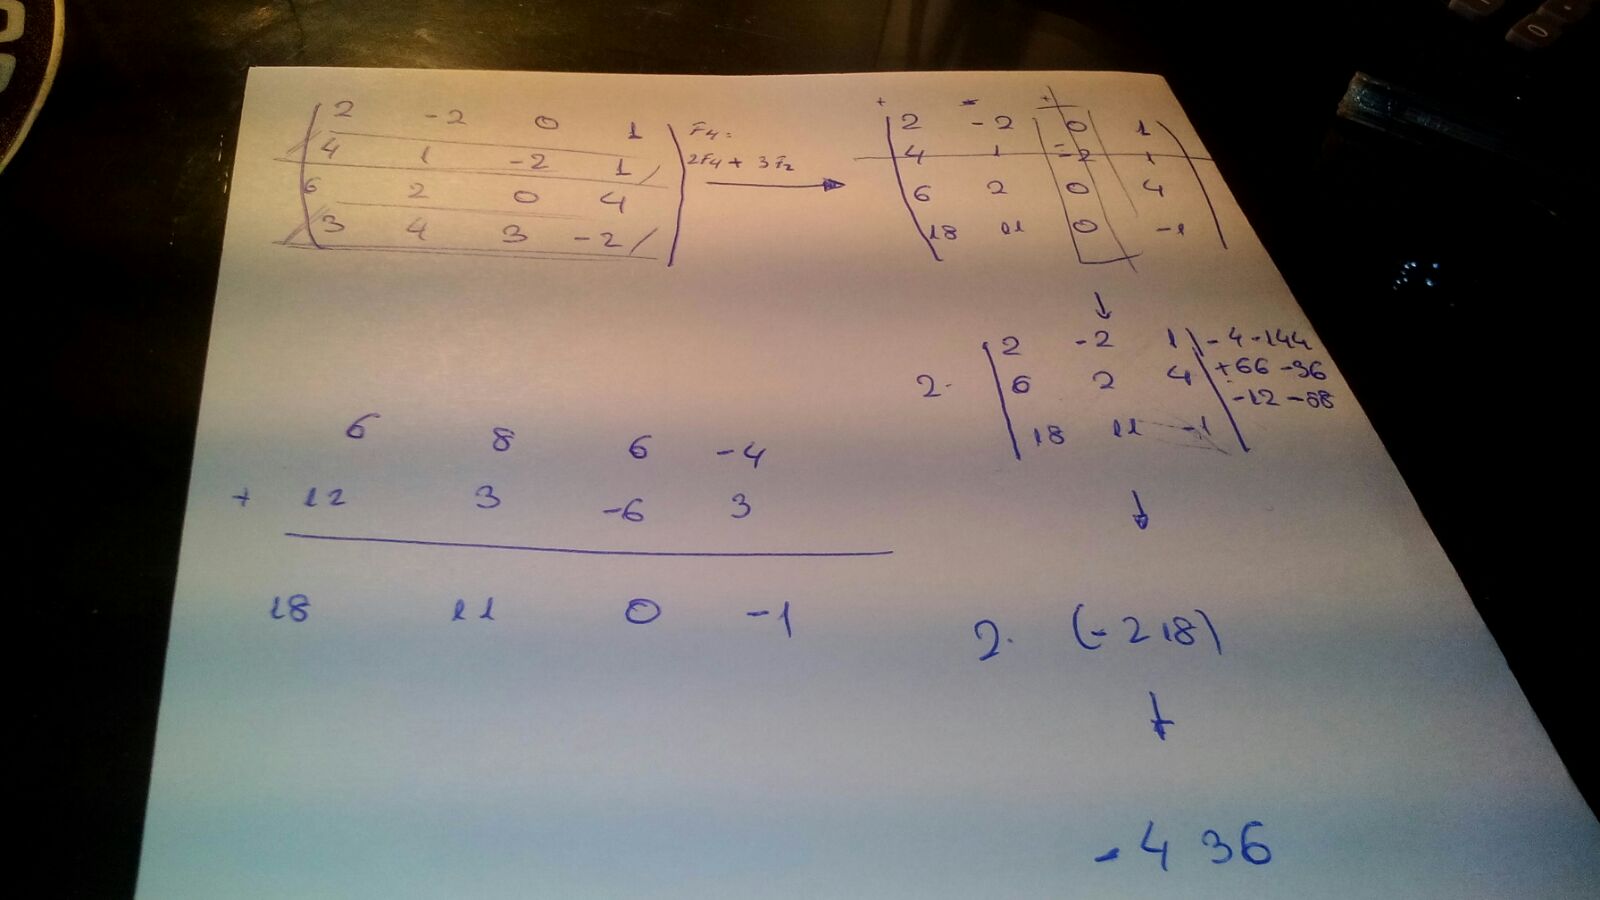 2 -2 0 1
4 1 -2 1
6 2 0 4
3 4 3 -2
F4=
2F4 + 3F2
+ - +
2 -2 0 1
4 1 -2 1
6 2 0 4
18 11 0 -1
2 -2 1
2· 6 2 4
18 11 -1
-4 -144
+66 -36
-12 -88
6 8 6 -4
+ 12 3 -6 3
18 11 0 -1
2· (-218)
-436